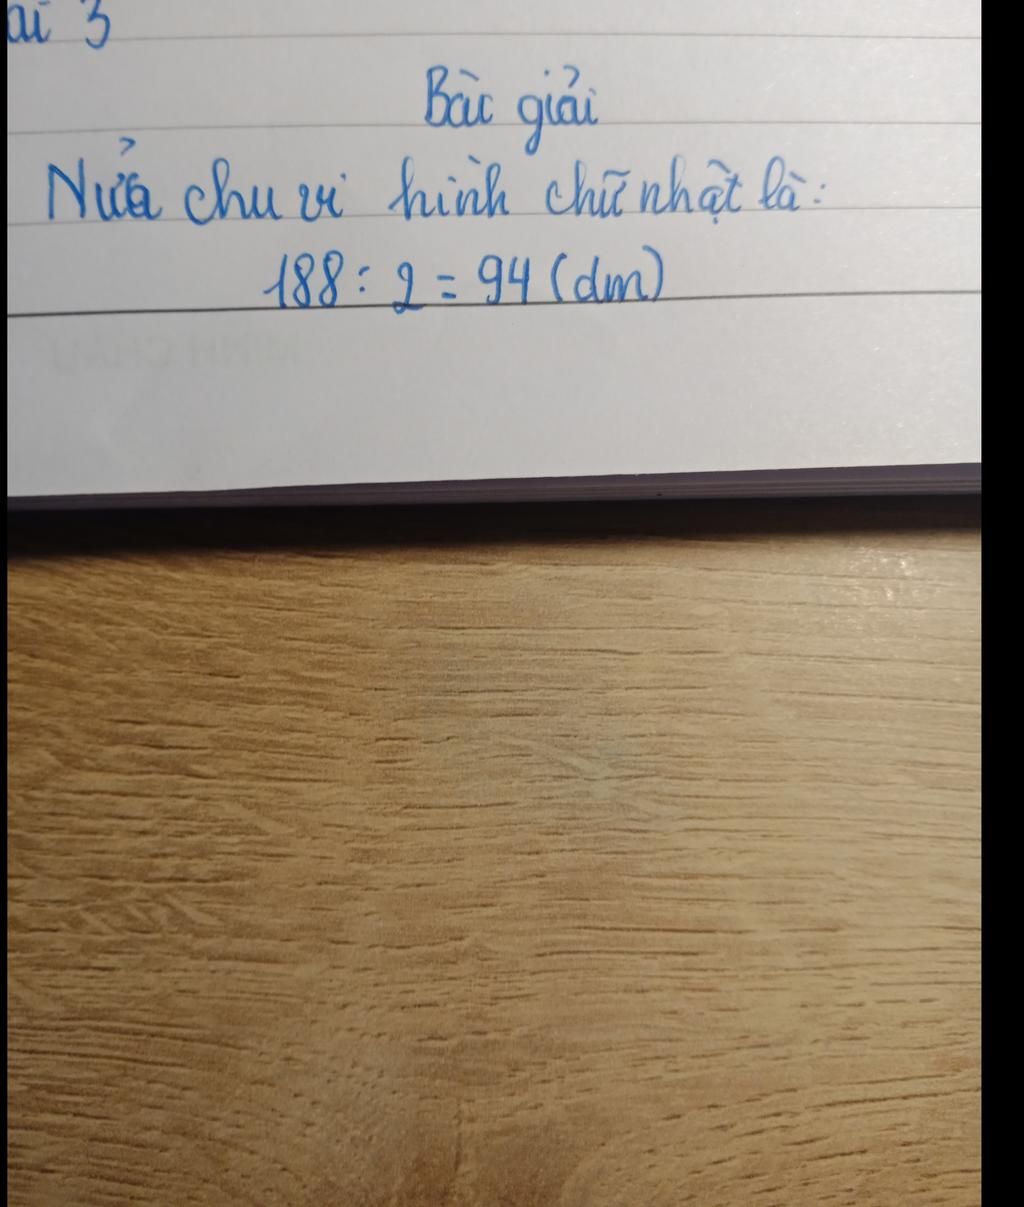 ài 3
Bài giải
Nửa chu vi hình chữ nhật là:
188 : 2 = 94 (dm)